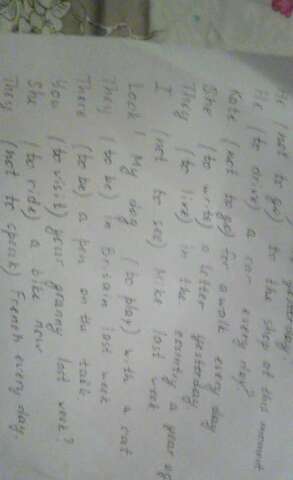 yesterday.
He (not to go) to the shop at this moment
He (to drive) a car every day?
Kate (not to go) for a walk every day
She (to write) a letter yesterday.
They (to live) in the country a year ag
I (not to see) Mike last week
Look! My dog (to play) with a cat
They (to be) in Britain last week
There (to be) a pen on the table
You (to visit) your granny last week?
She (to ride) a bike now
They (not to speak) French every day.